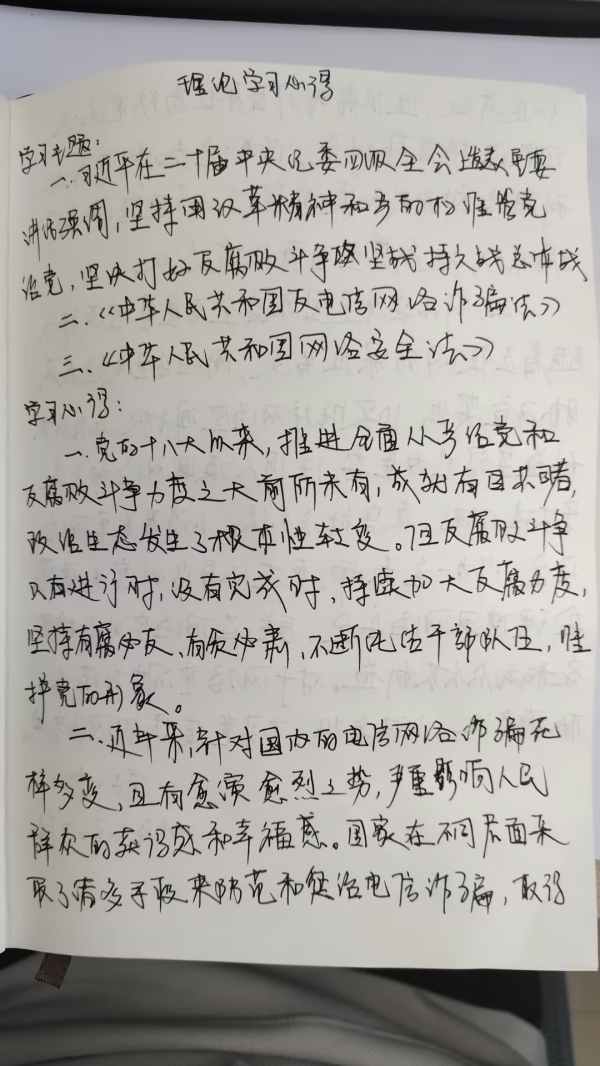 理论学习心得
学习专题:
一、习近平在二十届中央纪委四次全会上发表重要
讲话强调,坚持用改革精神和严的标准管党
治党,坚决打好反腐败斗争攻坚战持久战总体战
二、《中华人民共和国反电信网络诈骗法》
三、《中华人民共和国网络安全法》
学习心得:
一、党的十八大以来,推进全面从严治党和
反腐败斗争力度之大前所未有,成就有目共睹,
政治生态发生了根本性转变。但反腐败斗争
只有进行时,没有完成时,持续加大反腐力度,
坚持有腐必反、有贪必肃,不断纯洁干部队伍,维
护党的形象。
二、近年来,针对国内的电信网络诈骗花
样多变,且有愈演愈烈之势,严重影响人民
群众的获得感和幸福感。国家在不同层面采
取了诸多手段来防范和惩治电信诈骗,取得